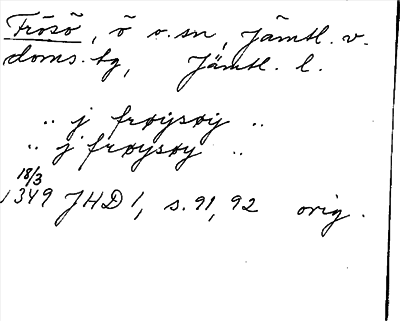 Frösö, ö o. sn, Jämtl. v.
doms. tg, Jämtl. l.
.. j frøysøy ..
.. j frøysøy ..
18/3
1349 JHD 1, s. 91, 92 orig.